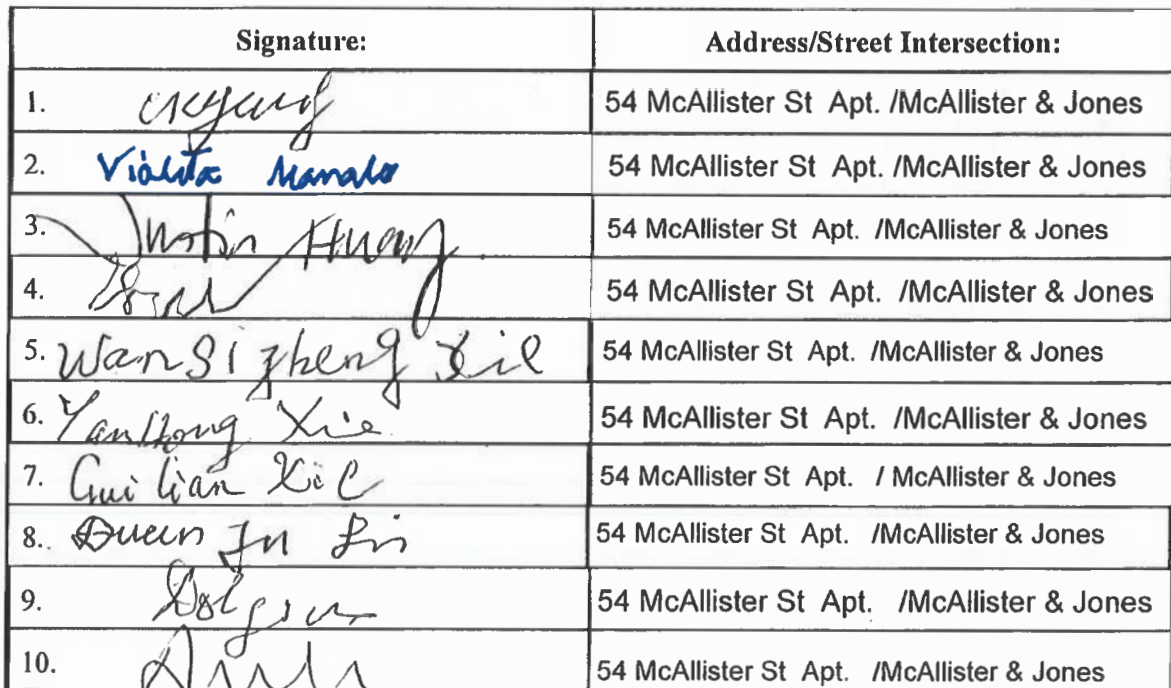 Signature: Address/Street Intersection:
1. 54 McAllister St Apt. /McAllister & Jones
2. Violeta Manalo 54 McAllister St Apt. /McAllister & Jones
3. Justin Huang 54 McAllister St Apt. /McAllister & Jones
4. 54 McAllister St Apt. /McAllister & Jones
5. Wansizheng Xie 54 McAllister St Apt. /McAllister & Jones
6. YanHong Xie 54 McAllister St Apt. /McAllister & Jones
7. Gui lian Xie 54 McAllister St Apt. / McAllister & Jones
8. 54 McAllister St Apt. /McAllister & Jones
9. 54 McAllister St Apt. /McAllister & Jones
10. 54 McAllister St Apt. /McAllister & Jones